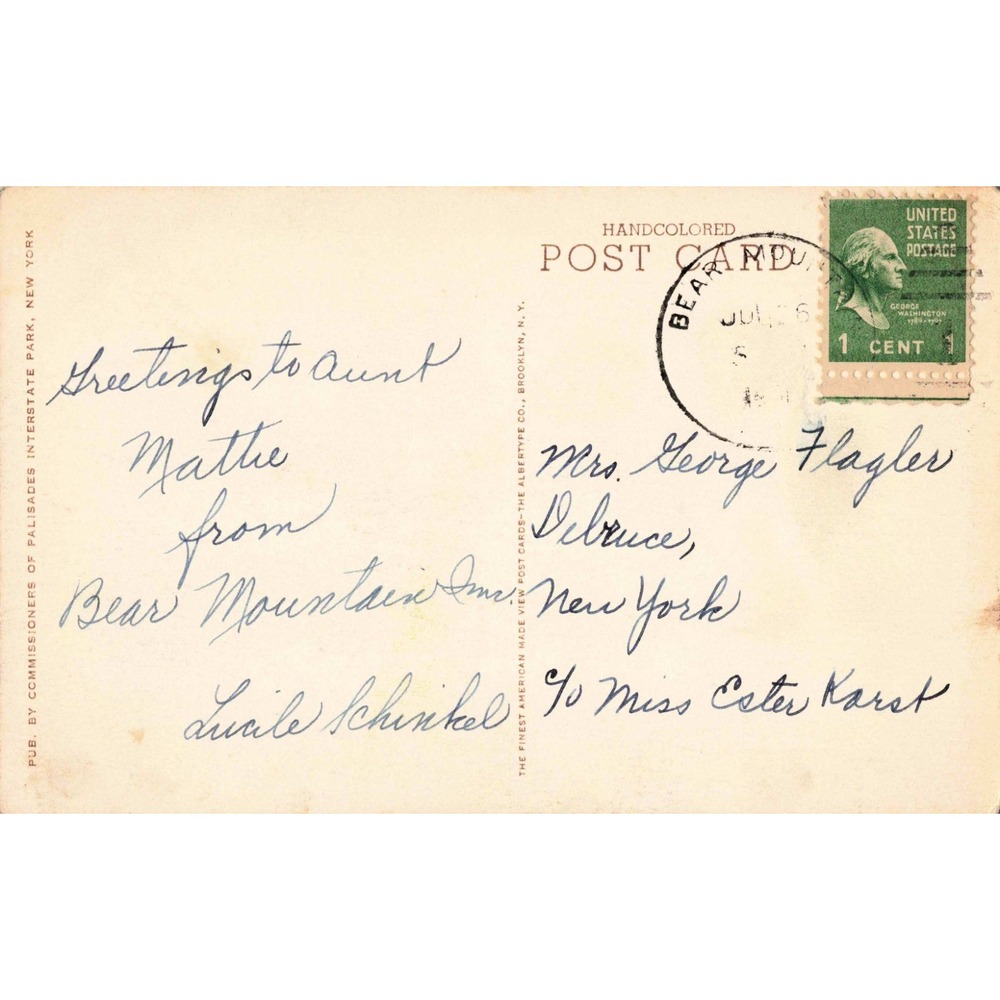 PUB. BY COMMISSIONERS OF PALISADES INTERSTATE PARK, NEW YORK
Greetings to Aunt
Mattie
from
Bear Mountain Inn.
Lucile Schinkel
THE FINEST AMERICAN MADE VIEW POST CARDS-THE ALBERTYPE CO., BROOKLYN, N.Y.
HANDCOLORED
POST CARD
BEAR MOUNT
JUL 26
UNITED
STATES
POSTAGE
GEORGE
WASHINGTON
1789-1797
1 CENT 1
Mrs. George Flagler
Debruce,
New York
c/o Miss Ester Karst